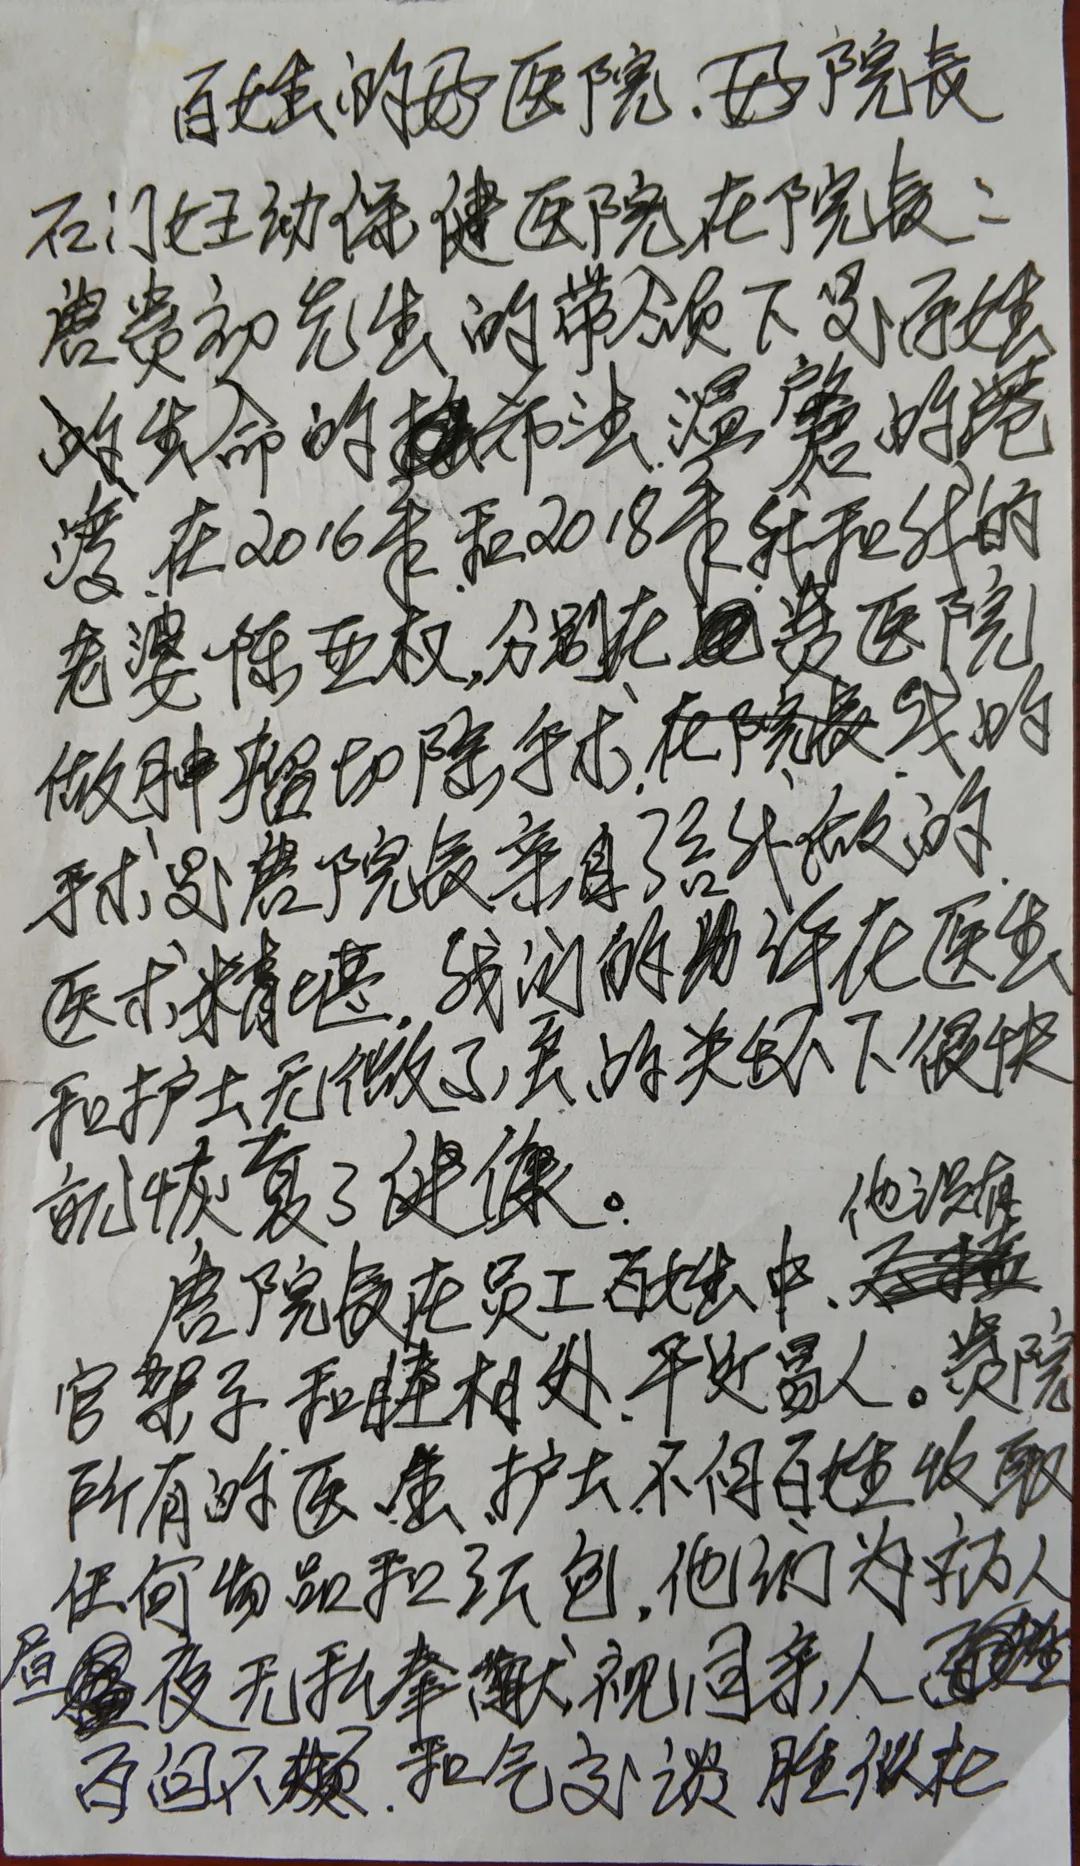 百姓的好医院.好院长
石门妇幼保健医院,在院长:
唐贵初先生的带领下是百姓
的生命的希法.温馨的港
湾.在2016年和2018年我和我的
老婆陈亚权,分别在贵医院
做肿瘤切除手术.我的
手术是唐院长亲自给我做的.
医术精堪.我们的助许在医生
和护士无微了至的关怀下很快
就恢复了健康。
他没有
唐院长在员工百姓中.
官架子和睦相处.平易昌人。贵院
所有的医生.护士.不得百姓收取
任何物品和红包.他们为病人
昼夜无私奉献视同亲人
百问不烦.和气交谈胜似在